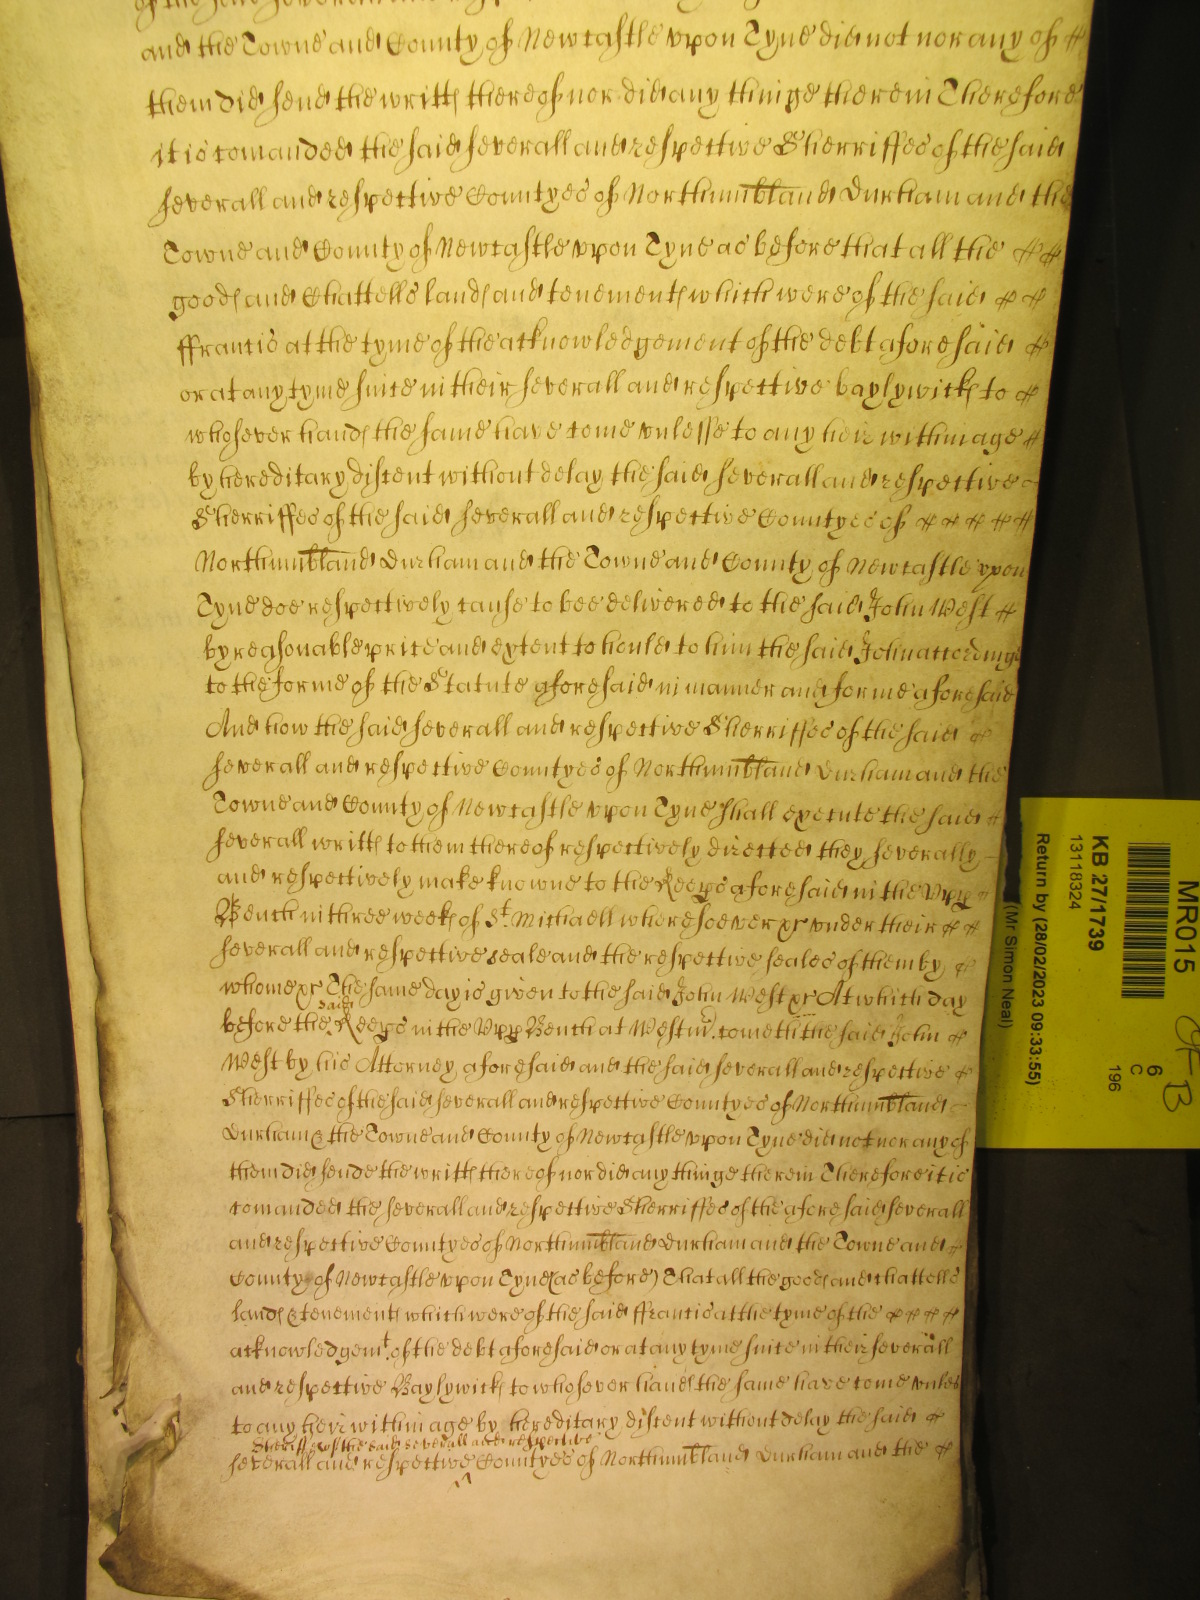 of the said severall and
and the Towne and County of Newcastle vpon Tyne did not nor any of
them did send the writt thereof nor did any thinge therein Therefore
it is comanded the said severall and respective Sherriffes of the said
severall and respective Countyes of Northumbland Durham and the
Towne and County of Newcastle vpon Tyne as before that all the
goods and Chattells lands and tenements which were of the said
ffrancis at the tyme of the acknowledgement of the debt aforesaid
or at any tyme since in their severall and respective baylywicks to
whosever hands the same have come vnlesse to any heir within age
by hereditary discent without delay the said severall and respective
Sherriffes of the said severall and respective Countyes of
Northumbland Durham and the Towne and County of Newcastle vpon
Tyne doe respectively cause to bee delivered to the said John West
by reasonable price and extent to hould to him the said John accordinge
to the forme of the Statute aforesaid in manner and forme aforesaid
And how the said severall and respective Sherriffes of the said
severall and respective Countyes of Northumbland Durham and the
Towne and County of Newcastle vpon Tyne shall execute the said
severall writts to them thereof respectively directed they severally
and respectively make knowne to the Keeps aforesaid in the Vpp
Bench in three weeks of St. Michaell wheresoever &c vnder their
severall and respective seale and the respective seales of them by
whome &c The same day is given to the said John West &c At which day
said
before the Keeps in the Vpp Bench at Westm. cometh the said John
West by his Attorney aforesaid and the said severall and respective
Sherriffes of the said severall and respective Countyes of Northumbland
Durham & the Towne and County of Newcastle vpon Tyne did not nor any of
them did sende the writts thereof nor did any thinge therein Therefore it is
comanded the severall and respective Sherriffes of the aforesaid severall
and respective Countyes of Northumbland Durham and the Towne and
County of Newcastle vpon Tyne (as before) That all the goods and chattells
lands & tenements which were of the said ffrancis at the tyme of the
acknowledgemt. of the debt aforesaid or at any tyme since in their severall
and respective Baylywicks to whosever hands the same have come vnles
to any heir within age by hereditary discent without delay the said
Sheriffes of the said severall and respective
severall and respective Countyes of Northumbland Durham and the
MR015
KB 27/1739
13118324
Return by (28/02/2023 09:33:55)
(Mr Simon Neal)
6
C
196